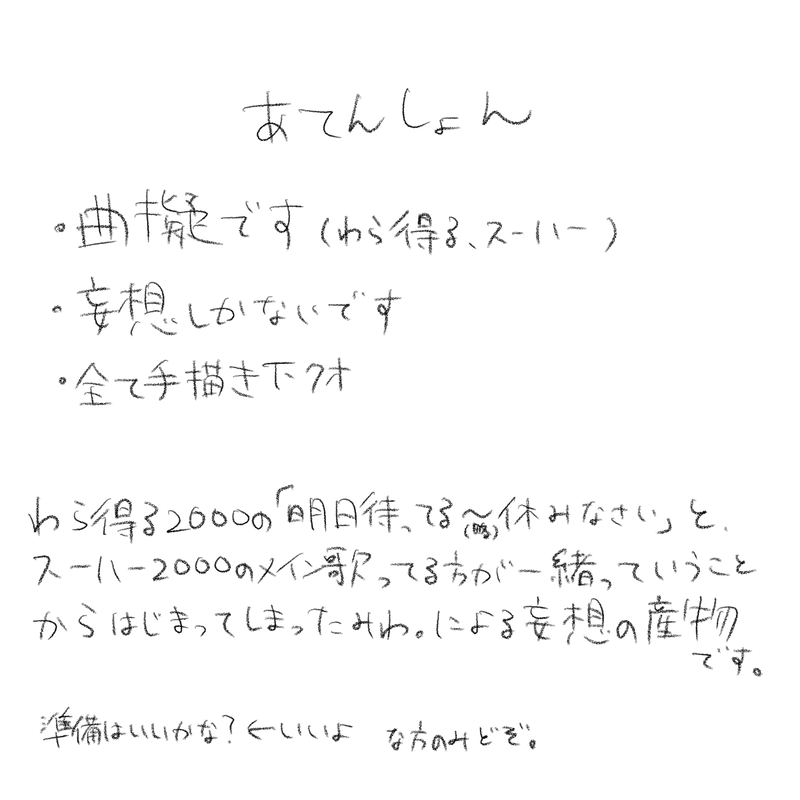 あてんしょん
・曲擬です(わら得る、スーハー)
・妄想しかないです
・全て手描き下クオ
わら得る2000の「明日待ってる〜(略)休みなさい」と、
スーハー2000のメイン歌ってる方が一緒っていうこと
からはじまってしまったみわ。による妄想の産物
です。
準備はいいかな?←いいよ な方のみどぞ。